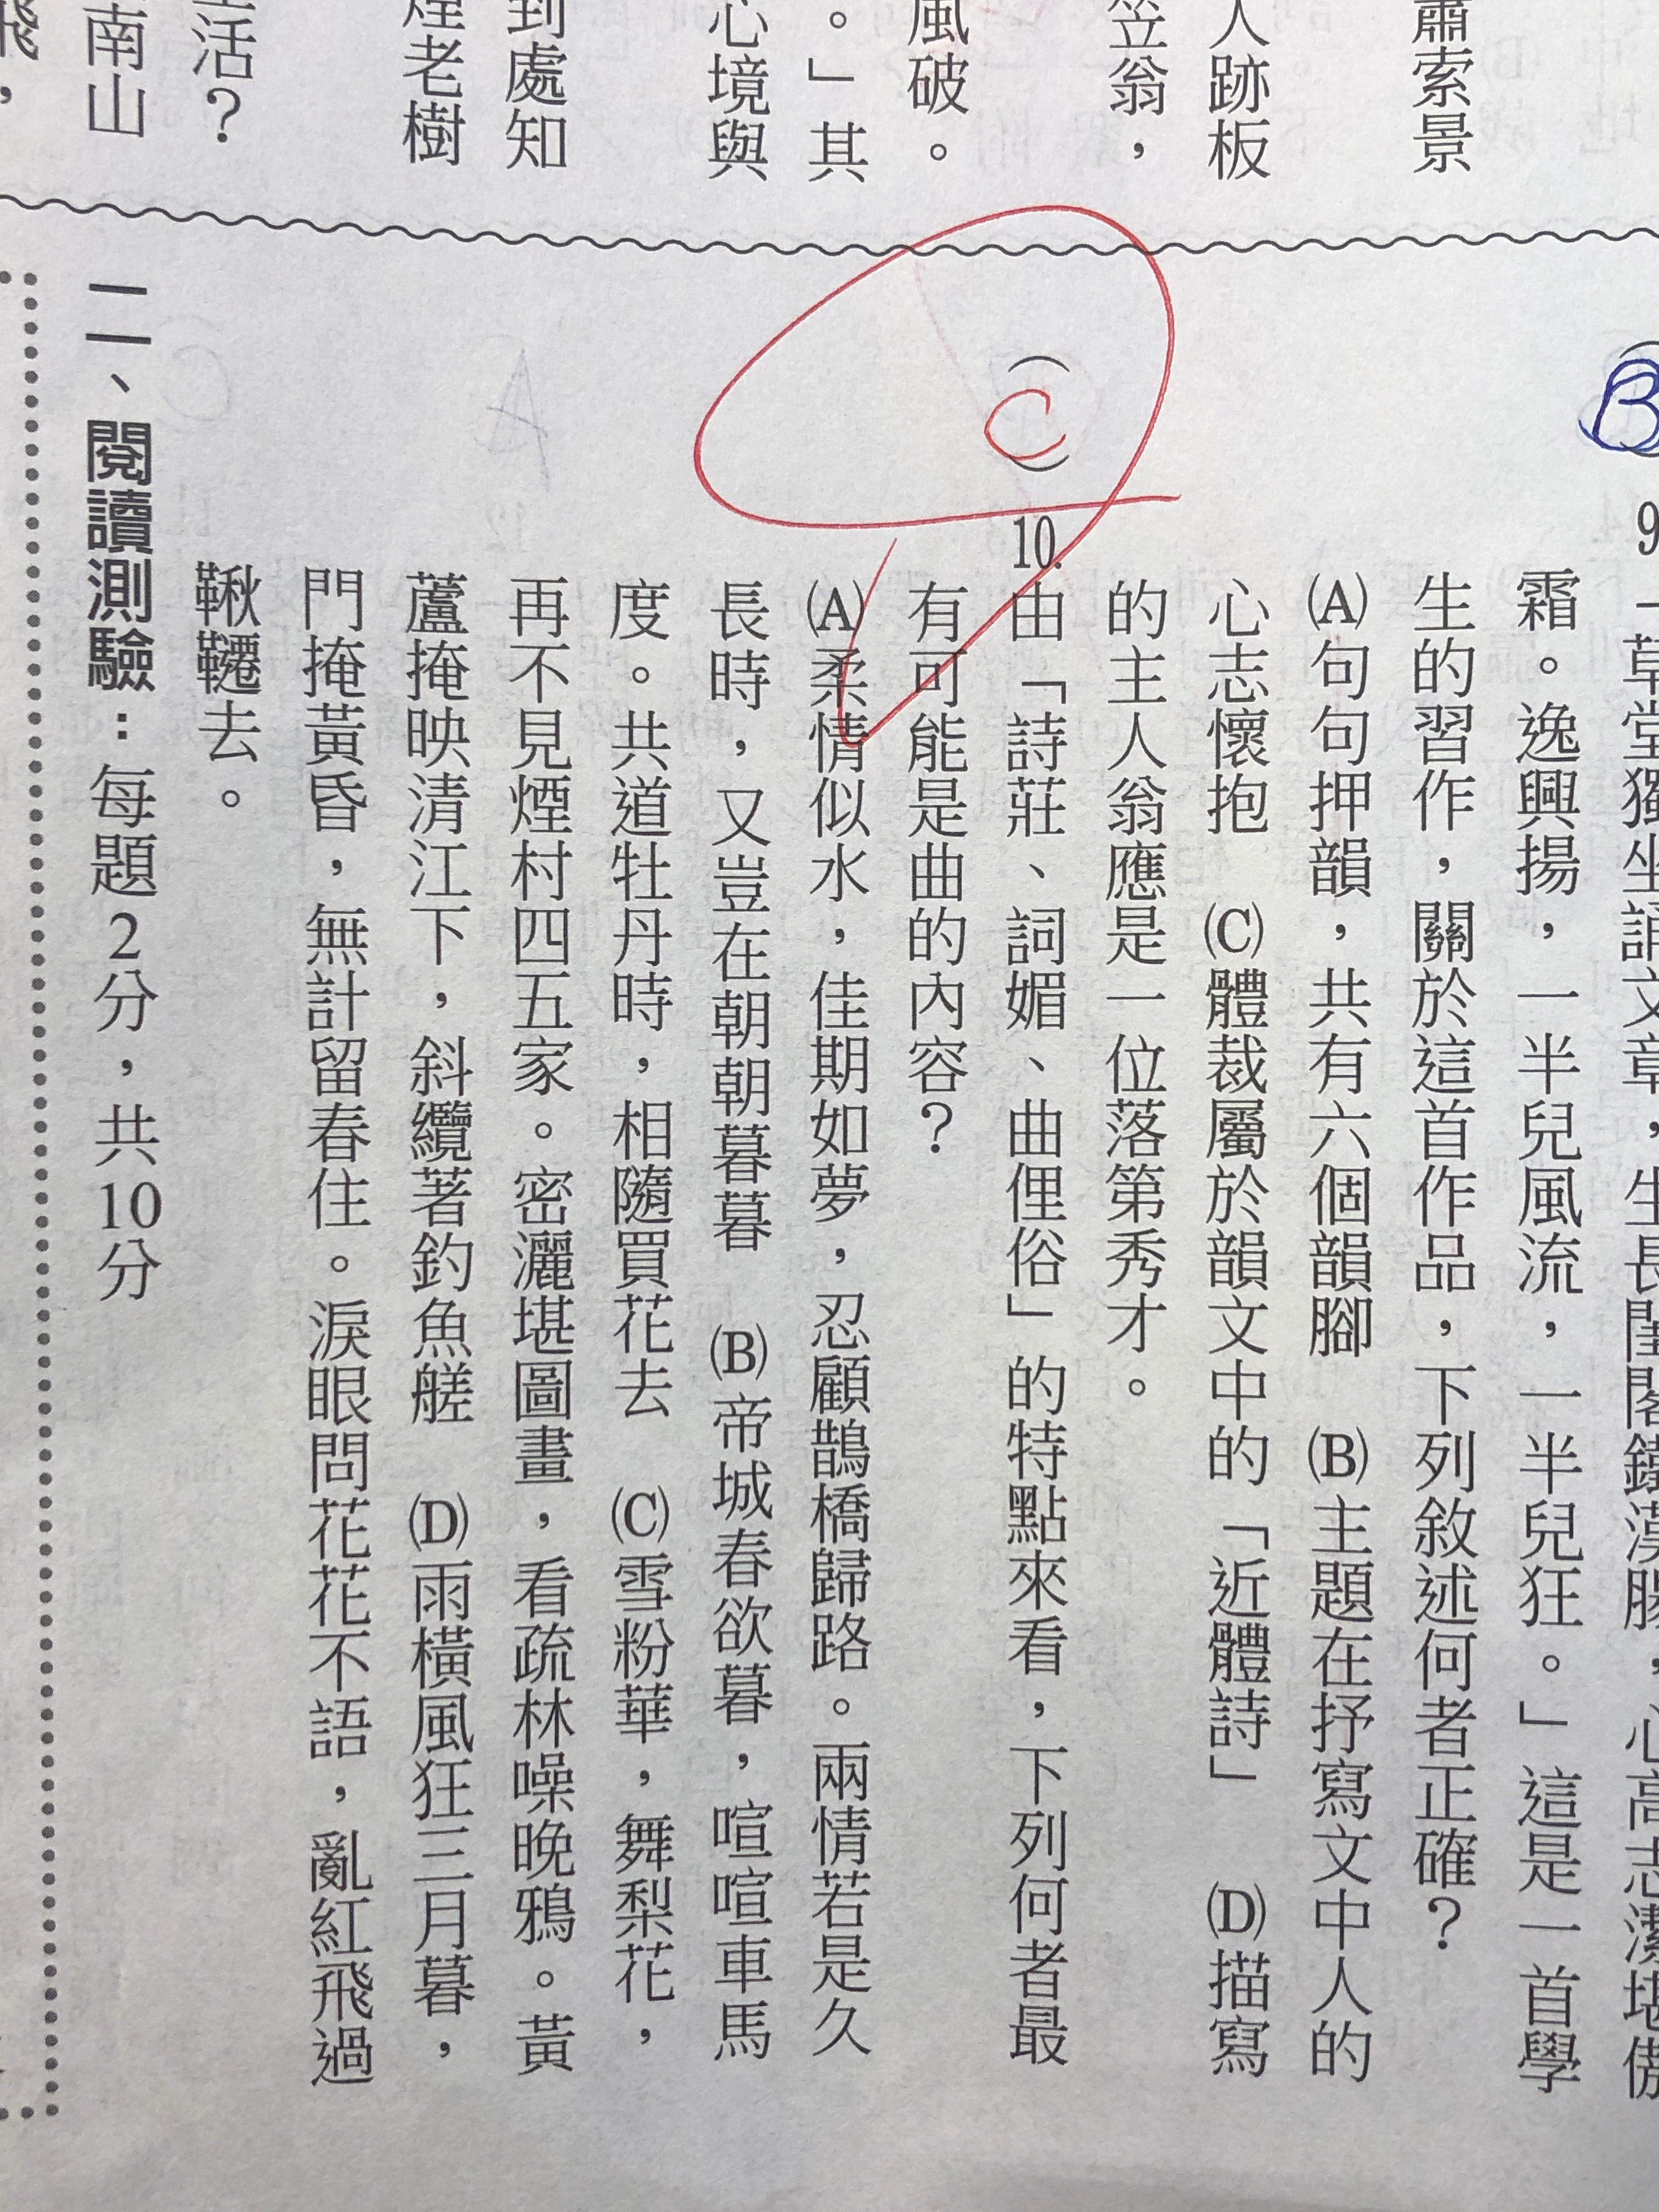 蕭索景
人跡板
笠翁，
風破。
。」其
心境與
到處知
煙老樹
生活？
南山
飛，
B
9.
草堂獨坐誦文章，生長閨閣鐵漢腸，心高志潔堪傲
霜。逸興揚，一半兒風流，一半兒狂。」這是一首學
生的習作，關於這首作品，下列敘述何者正確？
(A)句句押韻，共有六個韻腳　(B)主題在抒寫文中人的
心志懷抱　(C)體裁屬於韻文中的「近體詩」　(D)描寫
的主人翁應是一位落第秀才。
（C）10.由「詩莊、詞媚、曲俚俗」的特點來看，下列何者最
有可能是曲的內容？
(A)柔情似水，佳期如夢，忍顧鵲橋歸路。兩情若是久
長時，又豈在朝朝暮暮　(B)帝城春欲暮，喧喧車馬
度。共道牡丹時，相隨買花去　(C)雪粉華，舞梨花，
再不見煙村四五家。密灑堪圖畫，看疏林噪晚鴉。黃
蘆掩映清江下，斜纜著釣魚艖　(D)雨橫風狂三月暮，
門掩黃昏，無計留春住。淚眼問花花不語，亂紅飛過
鞦韆去。
二、閱讀測驗：每題2分，共10分